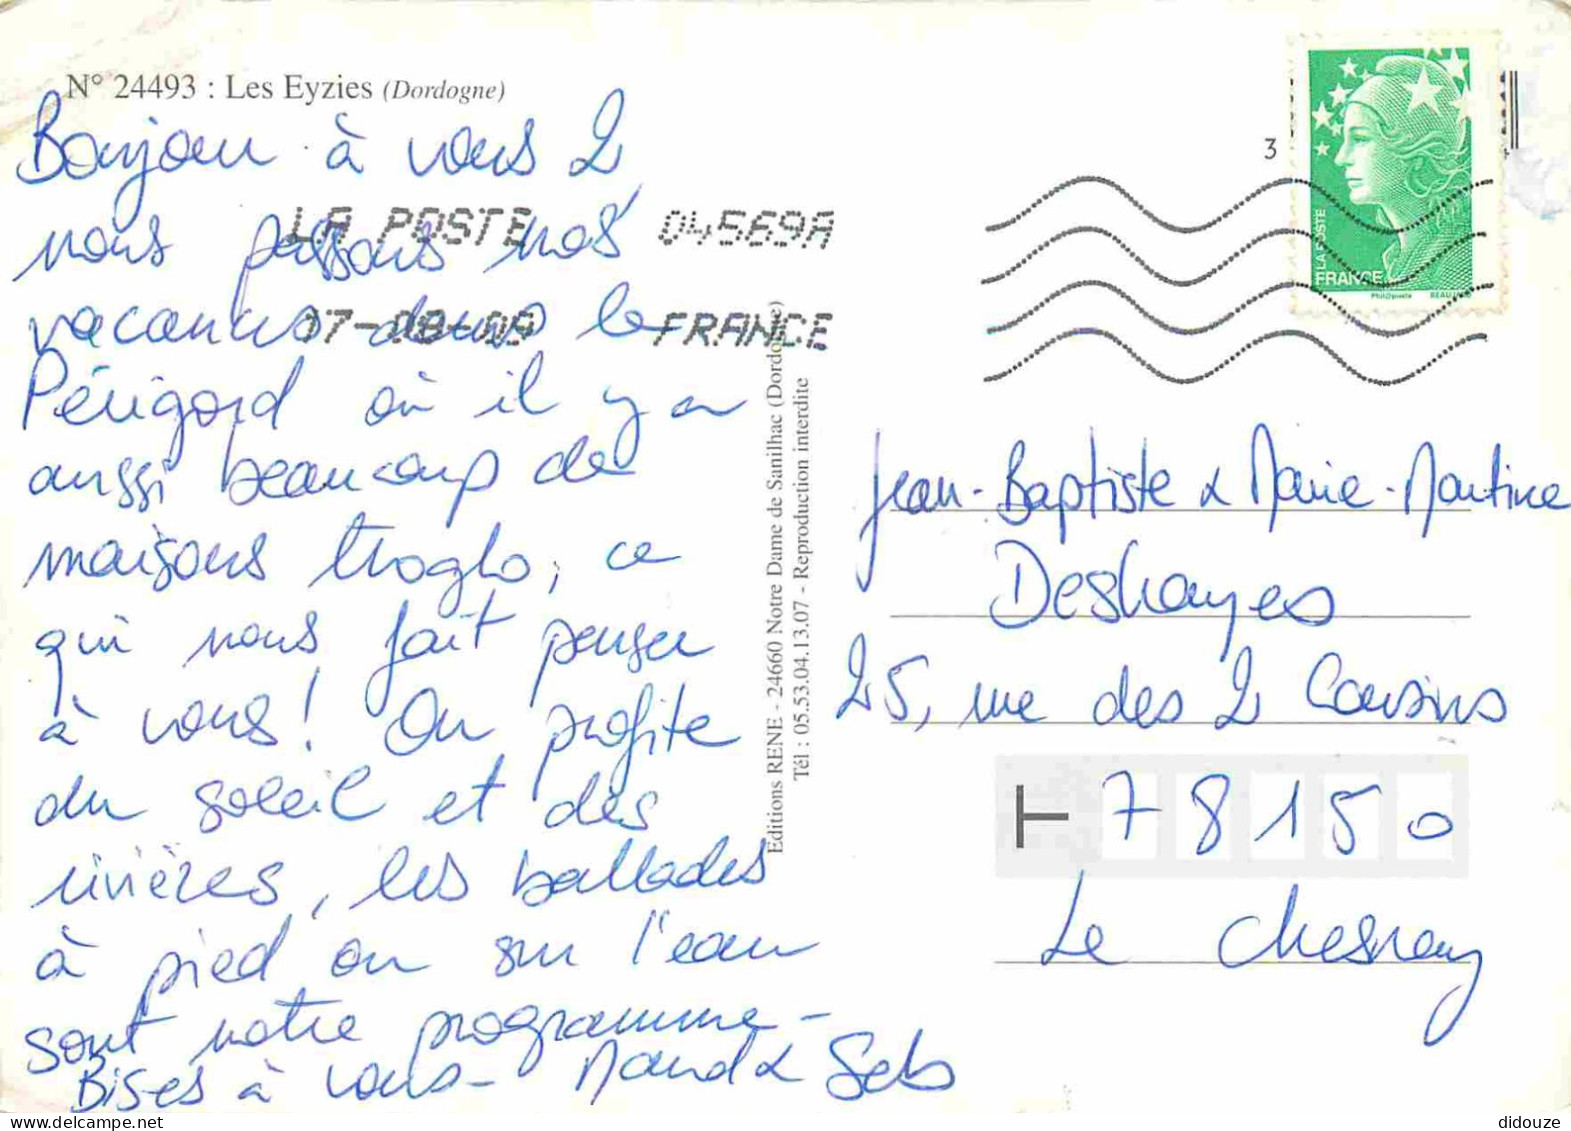 N° 24493 : Les Eyzies (Dordogne)
Bonjour à vous 2
nous passons nos
vacances dans le
Périgord où il y a
aussi beaucoup de
maisons troglo, ce
qui nous fait penser
à vous! On profite
du soleil et des
rivières, les ballades
à pied ou sur l'eau
sont notre programme -
Bises à vous - Maud & Seb
LA POSTE 04569A
07-08-09 FRANCE
Editions RENE - 24660 Notre Dame de Sanilhac (Dordogne)
Tél : 05.53.04.13.07 - Reproduction interdite
3
LA POSTE
FRANCE
Phil@poste
Jean-Baptiste & Marie-Martine
Deshayes
25, rue des 2 Cousins
78150
Le Chesnay
didouze